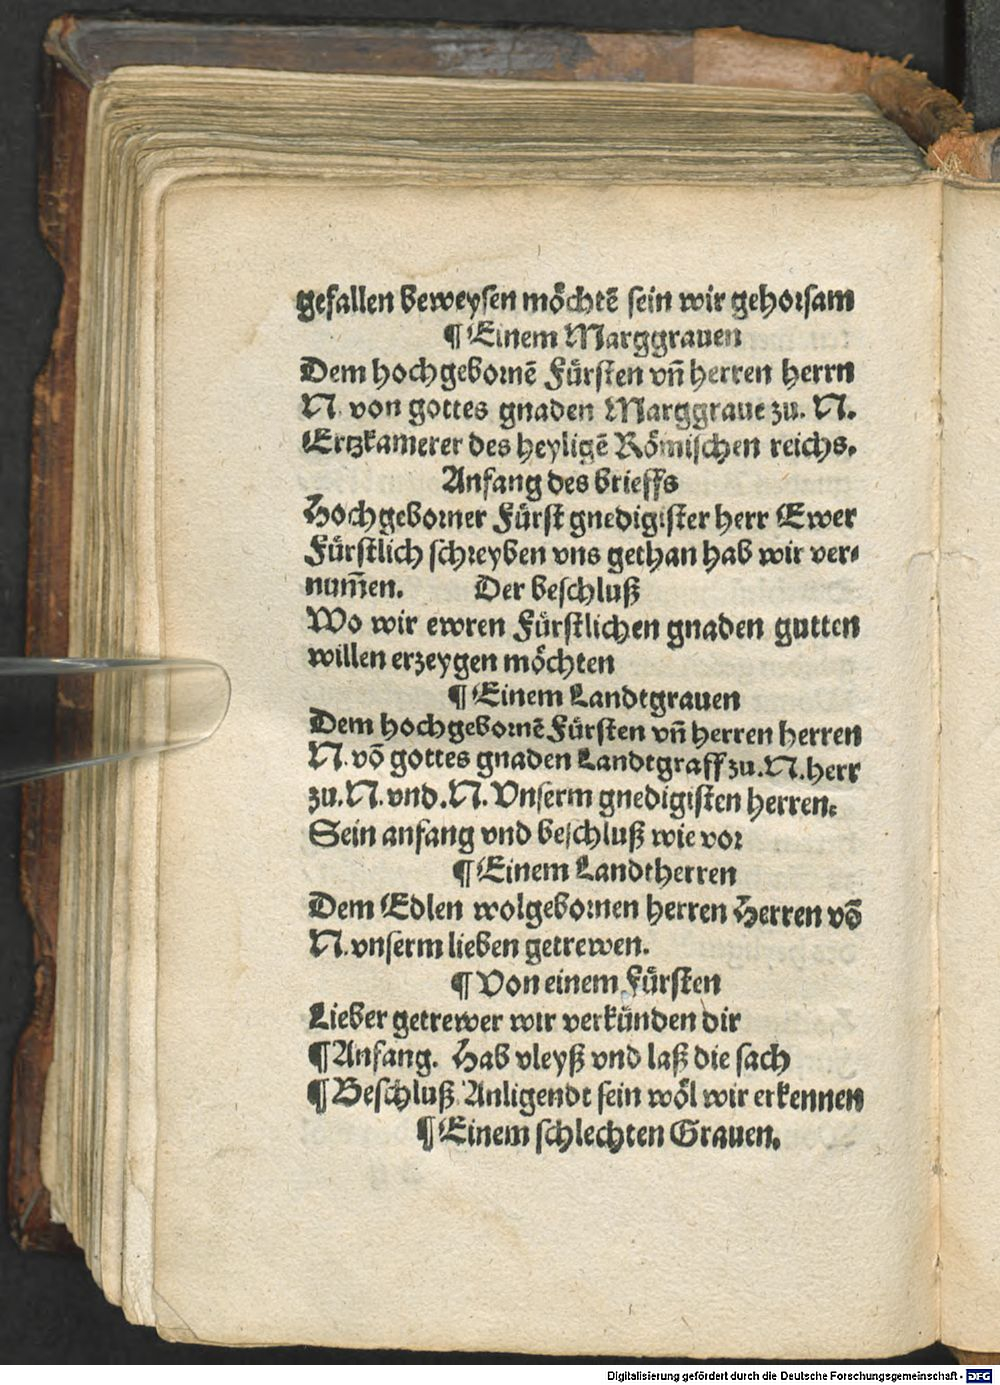 gefallen beweysen möchtē sein wir gehorsam
¶ Einem Marggrauen
Dem hochgebornē Fürsten vñ herren herrn
N. von gottes gnaden Marggraue zu. N.
Ertzkamerer des heyligē Römischen reichs.
Anfang des brieffs
Hochgeborner Fürst gnedigister herr Ewer
Fürstlich schreyben vns gethan hab wir ver⸗
num̄en. Der beschluß
Wo wir ewren Fürstlichen gnaden gutten
willen erzeygen möchten
¶ Einem Landtgrauen
Dem hochgebornē Fürsten vñ herren herren
N. vō gottes gnaden Landtgraff zu. N. herr
zu. N. vnd. N. Vnserm gnedigisten herren.
Sein anfang vnd beschluß wie vor
¶ Einem Landtherren
Dem Edlen wolgebornen herren Herren vō
N. vnserm lieben getrewen.
¶ Von einem Fürsten
Lieber getrewer wir verkünden dir
¶ Anfang. Hab vleyß vnd laß die sach
¶ Beschluß Anligendt sein wöl wir erkennen
¶ Einem schlechten Grauen.
Digitalisierung gefördert durch die Deutsche Forschungsgemeinschaft - DFG